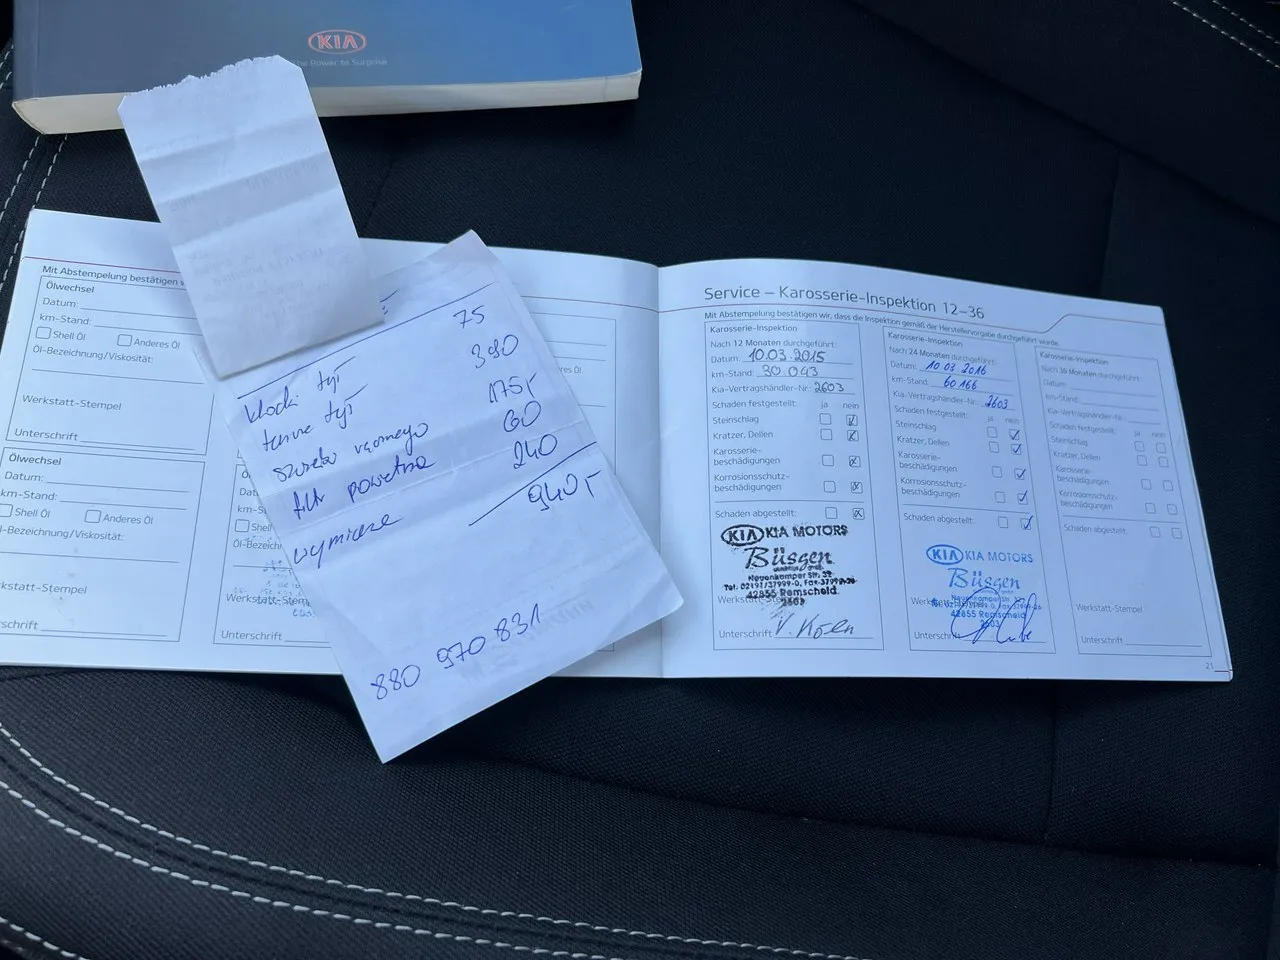 KIA
The Power to Surprise
Mit Abstempelung bestätigen
Ölwechsel
Datum:
km-Stand:
Shell Öl
Anderes Öl
Öl-Bezeichnung/Viskosität:
Werkstatt-Stempel
Unterschrift
Ölwechsel
Datum:
km-Stand:
Shell Öl
Anderes Öl
Öl-Bezeichnung/Viskosität:
Werkstatt-Stempel
Unterschrift
Shell
Öl-Bezeichn
Werkstatt-Stem
Unterschrift
75
klocki tył 390
tarcze tył 175,-
60
filtr powietrza 240
wymiana 940,-
880 970 831
Service – Karosserie-Inspektion 12–36
Mit Abstempelung bestätigen wir, dass die Inspektion gemäß der Herstellervorgabe durchgeführt wurde.
Karosserie-Inspektion
Nach 12 Monaten durchgeführt:
Datum: 10.03.2015
km-Stand: 30.043
Kia-Vertragshändler-Nr.: 2603
Schaden festgestellt: ja nein
Steinschlag
Kratzer, Dellen
Karosserie-
beschädigungen
Korrosionsschutz-
beschädigungen
Schaden abgestellt:
KIA KIA MOTORS
Büsgen
Neuenkamper Str.
42855 Remscheid
2603
Unterschrift
Karosserie-Inspektion
Nach 24 Monaten durchgeführt:
Datum: 10 03 2016
km-Stand: 60 166
Kia-Vertragshändler-Nr.: 2603
Schaden festgestellt: ja nein
Steinschlag
Kratzer, Dellen
Karosserie-
beschädigungen
Korrosionsschutz-
beschädigungen
Schaden abgestellt:
KIA KIA MOTORS
Büsgen
42855 Remscheid
2603
Unterschrift
Karosserie-Inspektion
Nach 36 Monaten durchgeführt:
Datum:
km-Stand:
Kia-Vertragshändler-Nr.:
Schaden festgestellt: ja nein
Steinschlag
Kratzer, Dellen
Karosserie-
beschädigungen
Korrosionsschutz-
beschädigungen
Schaden abgestellt:
Werkstatt-Stempel
Unterschrift
21